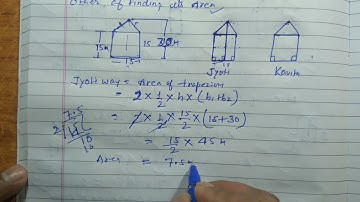 Other of Finding its Area
15m 15 30m
15m
Jyoti Kavita
Jyoti way = Area of trapezium
= 2 × 1/2 × h × (b1+b2)
= 2 × 1/2 × 15/2 × (15+30)
= 15/2 × 45m
Area = 7.5
7.5
2 15
14
10
10